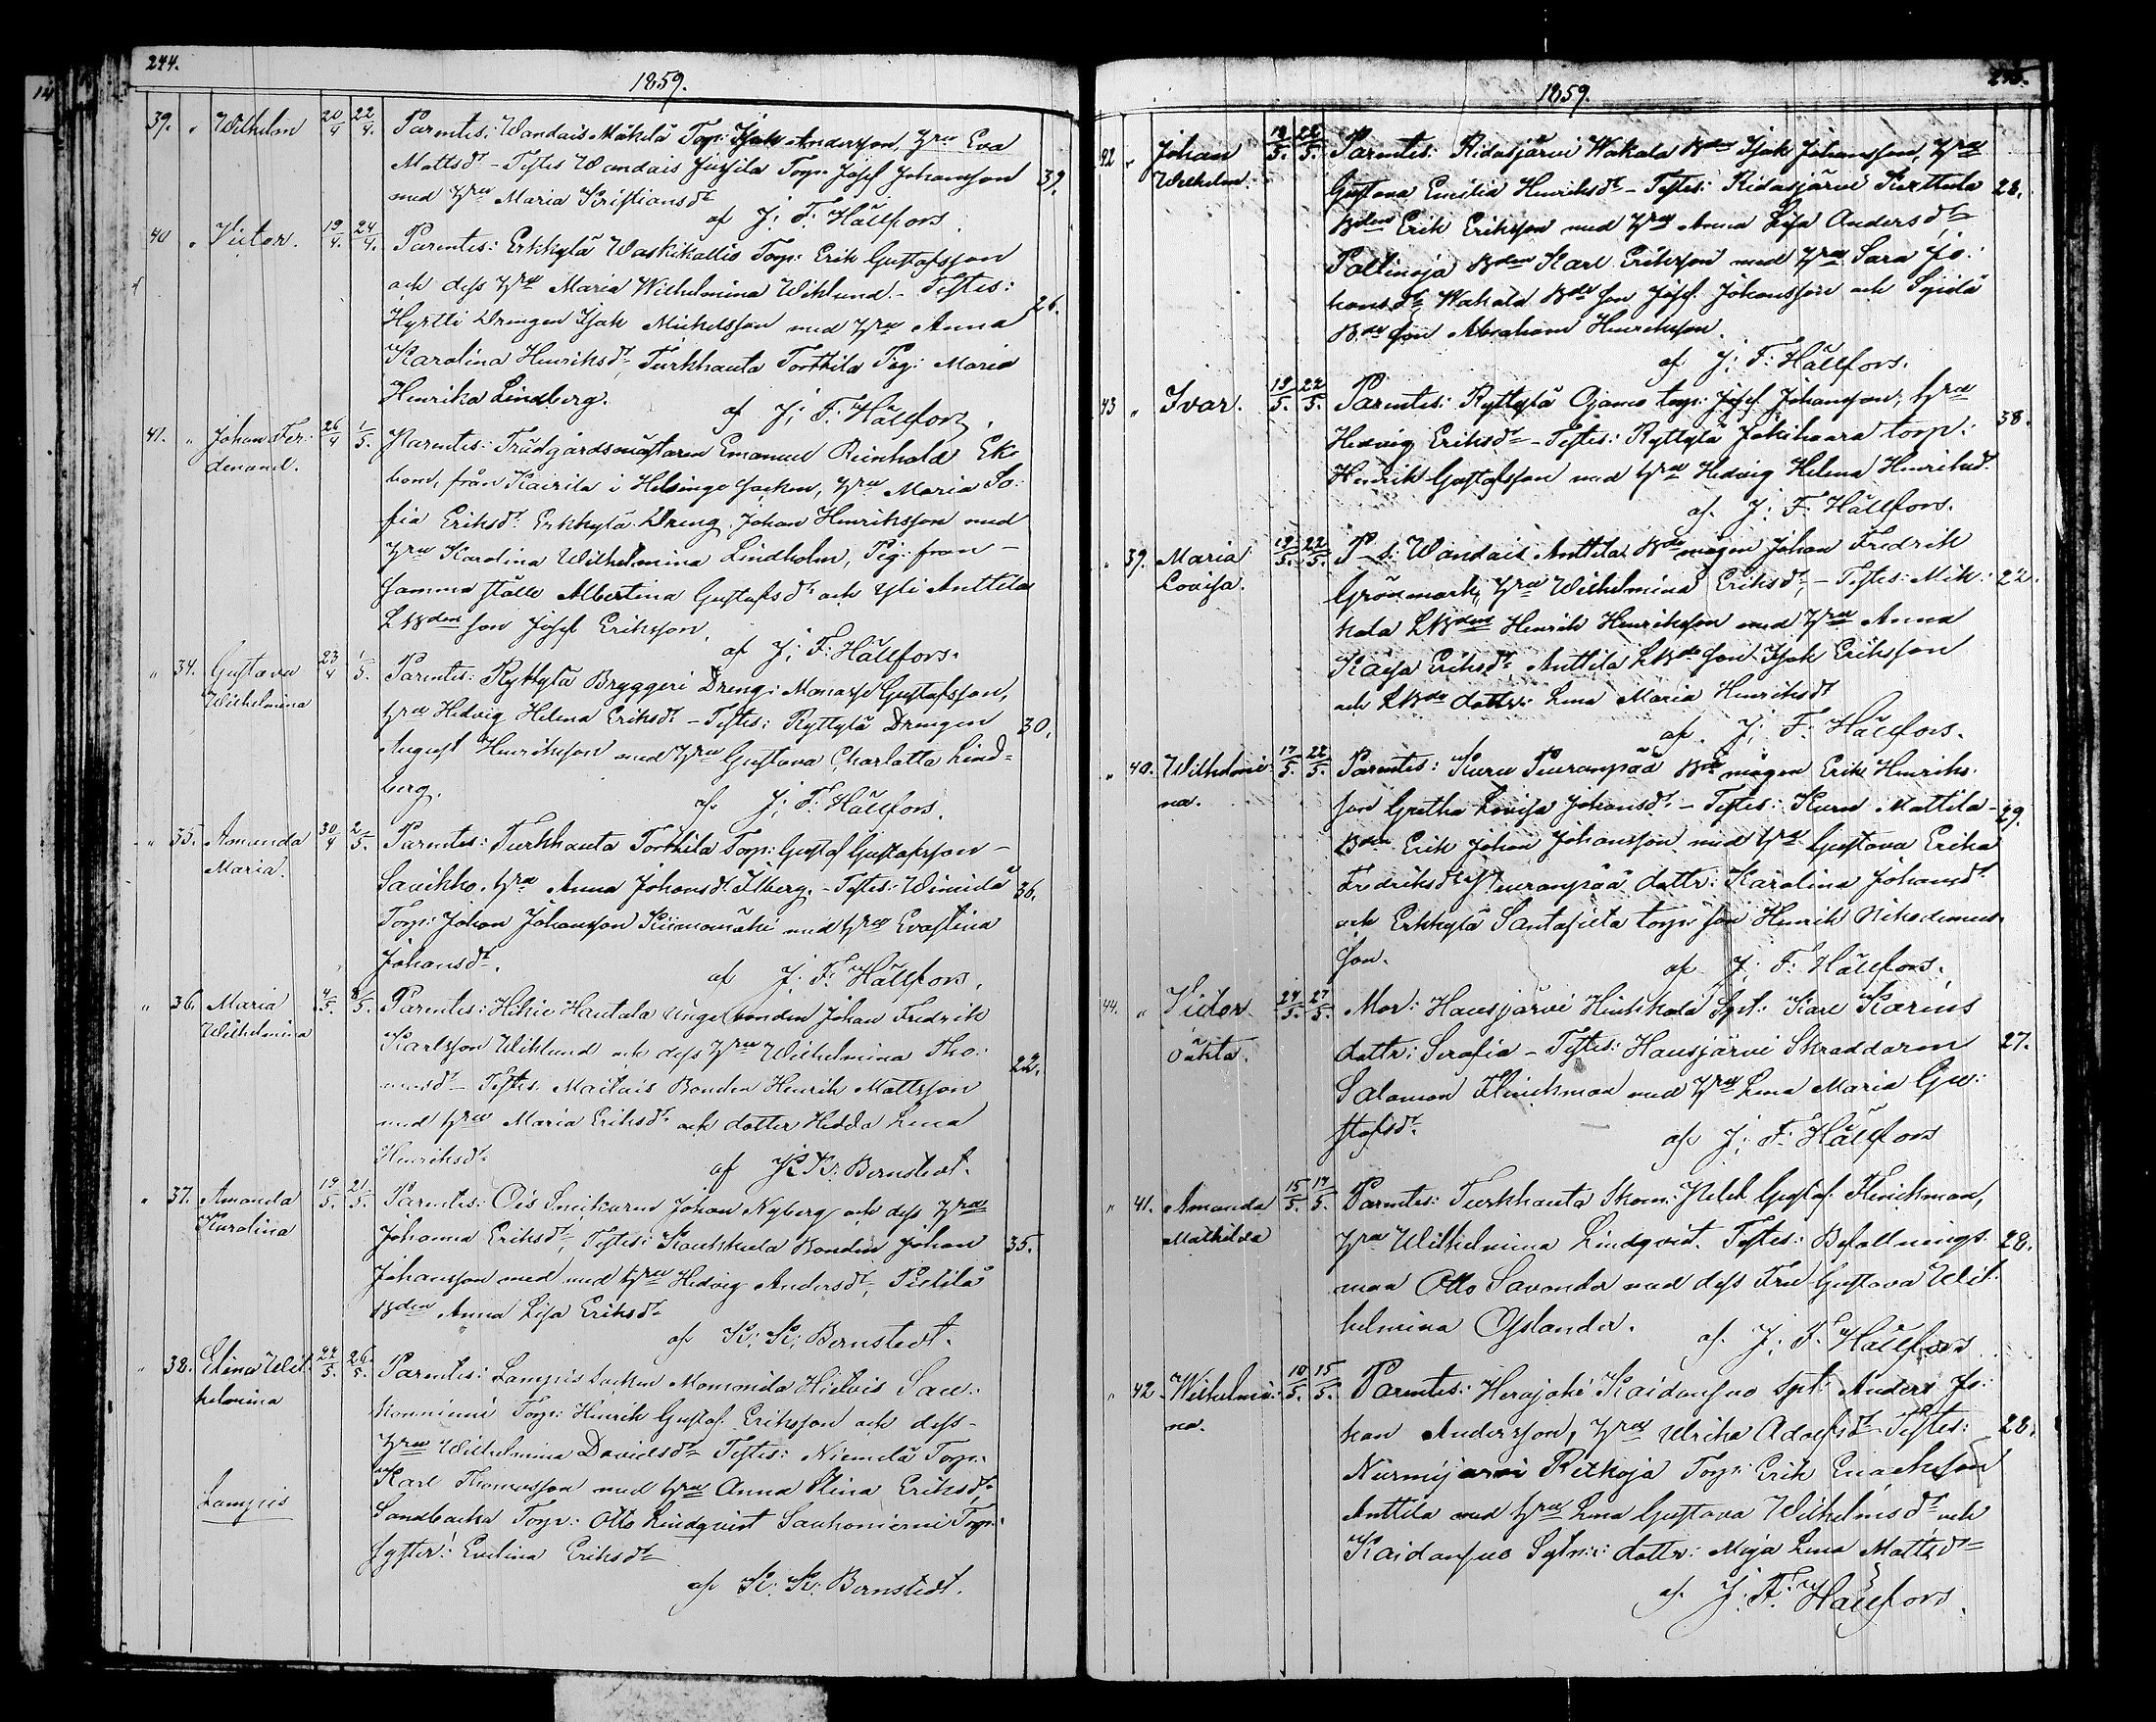 244.
1859.
39. " Wilhelm 20/4 22/4. Parentes: Wandais Mäkilä Torp: Isak Andersson, hru Eva
Mattsdr - Testes Wandais Jussila Torp: Josef Johansson 39.
med hru Maria Kristiansdr
af J: F: Hällfors.
40 " Victor. 19/4. 24/4. Parentes: Erkkylä Waskikallio Torp: Erik Gustafsson
och dess hru Maria Wilhelmina Wiklund. - Testes: 26.
Hyrtti Drengen Isak Michelsson med hru Anna
Karolina Henriksdr, Turkhauta Torttila Pig: Maria
Henrika Lindberg.
af J: F: Hällfors.
41. " Johan Fer: 26/4 1/5. Parentes: Trädgårdsmästaren Emanuel Reinhold Ek-
denand.
bom, från Kairila i Helsinge socken, hru Maria So:
fia Eriksdr. Erkkylä Dreng Johan Henriksson med
hru Karolina Wilhelmina Lindholm, Pig: från -
samma ställe Albertina Gustafsdr och Yli Anttila
LBden son Josef Eriksson.
af J: F: Hällfors.
" 34. Gustava 23/4 1/5. Parentes: Ryttylä Bryggeri Dreng: Manasse Gustafsson,
Wilhelmina
hru Hedvig Helena Eriksdr - Testes: Ryttylä Drengen 30.
August Henriksson med hru Gustava Charlotta Lind=
berg.
af J: F: Hällfors.
" 35. Amanda 30/4 2/5. Parentes: Turkhauta Torttila Torp: Gustaf Gustafsson -
Maria.
Savikko, hru Anna Johansdr Ilberg. - Testes: 36.
Torp: Johan Johansson Kiimamäki med hru Evastina
Johansdr.
af J: F: Hällfors.
" 36. Maria 4/5. 8/5. Parentes: Hikie Hautala unge bonden Johan Fredrik
Wilhelmina
Karlsson Wiklund och dess hru Wilhelmina Tho: 22.
masdr - Testes Bonden Henrik Mattsson
med hru Maria Eriksdr och dotter Hedda Lena
Henriksdr.
af K: K: Bernstedt.
" 37. Amanda 19/5. 21/5. Parentes: Ois Snickaren Johan Nyberg och dess hru
Karolina
Johanna Eriksdr, Testes: Karhkula Bonden Johan 35.
Johansson med med hru Hedvig Andersdr, Pietilä
Bden Anna Lisa Eriksdr
af K: K: Bernstedt.
" 38. Elina Wil: 22/5. 26/5. Parentes: Lampis socken Mommila Hietois Sau:
helmina
konniemi Torp: Henrik Gustaf Eriksson och dess -
hru Wilhelmina Davidsdr Testes: Niemelä Torp:
Karl Thomasson med hru Anna Stina Eriksdr
Lampis
Sandbacka Torp: Otto Lindqvist Saukoniemi Torp:
syster: Evelina Eriksdr
af K: K: Bernstedt.
245.
1859.
42 " Johan 18/5. 22/5. Parentes: Ridasjärvi Wakala Bden Isak Johansson, hru
Wilhelm.
Gustava Emilia Henriksdr - Testes: Ridasjärvi Kerttula 28.
Bden Erik Eriksson med hru Anna Lisa Andersdr
Paltinoja Bden Karl Eriksson med hru Sara Jo:
hansdr, Wakala Bde son Josef Johansson och
Bde son Abraham Henriksson.
af J: F: Hällfors.
43 " Ivar. 19/5. 22/5. Parentes: Ryttylä Ojamo torp: Josef Johansson, hru
Hedvig Eriksdr - Testes: Ryttylä Jokihaara torp: 38.
Henrik Gustafsson med hru Hedvig Helena Henriksdr.
af J: F: Hällfors.
" 39. Maria 19/5. 22/5. P-s: Wandais Anttila Bde mågen Johan Fredrik
Lovisa.
Grönmark, hru Wilhelmina Eriksdr, - Testes: Mik: 22.
kola LBden Henrik Henriksson med hru Anna
Kaisa Eriksdr, Anttila LBde son Isak Eriksson
och LBde dotter: Lena Maria Henriksdr
af J: F: Hällfors.
" 40. Wilhelmi: 17/5. 22/5. Parentes: Kuru Peuranpää Bde mågen Erik Henriks-
na.
son Gretha Lovisa Johansdr. - Testes: Kuru Mattila - 29.
Bden Erik Johan Johansson med hru Gustava Erika
Fredriksdr, Peuranpää dotter: Karolina Johansdr
och Erkkylä Santafilta torp: son Henrik Nikodemus-
son.
af J: F: Hällfors.
44. " Victor 24/5. 27/5. Mor: Hausjärvi Hinkkala Sptt: Karl Karius
oäkta.
dotter: Serafia - Testes: Hausjärvi Skräddaren 27.
Salomon Flinckman med hru Lena Maria Gu:
stafsdr.
af J: F: Hällfors
" 41. Amanda 15/5. 17/5. Parentes: Turkhauta Skom: Gustaf Flinckman,
Mathilda
hru Wilhelmina Lindqvist. Testes: Befallnings- 28.
man Otto Savander med dess Fru Gustava Wil:
helmina Oslander.
af J: F: Hällfors
" 42. Wilhelmi: 10/5. 15/5. Parentes: Herajoki Kaidansuo Sptt: Anders Jo:
na.
han Andersson, hru Ulrika Adolfsdr Testes: 28.
Nurmijärvi Retkoja Torp: Erik Enachsson
Anttila med hru Lena Gustava Wilhelmsdr och
Kaidansuo dotter: Maja Lena Mattsdr
af J: F: Hällfors.